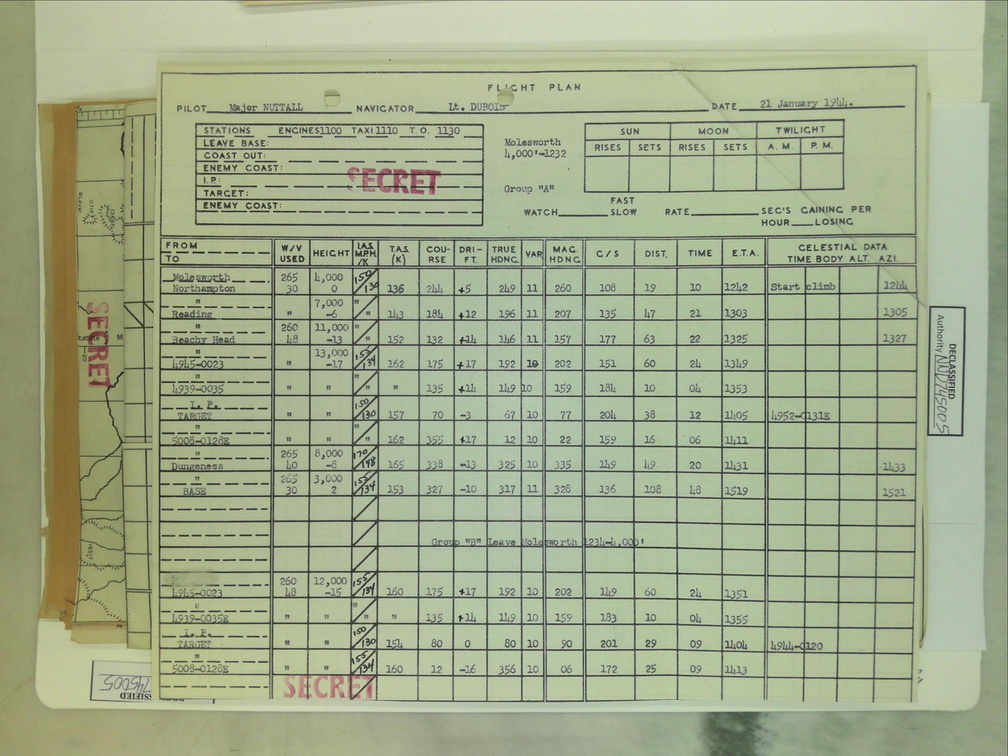 FLIGHT PLAN
PILOT Major NUTTALL NAVIGATOR Lt. DUBOIS DATE 21 January 1944.
STATIONS ENGINES 1100 TAXI 1110 T.O. 1130
LEAVE BASE:
COAST OUT:
ENEMY COAST:
I.P.:
TARGET:
ENEMY COAST:
SECRET
Molesworth
4,000'-1232
Group "A"
SUN MOON TWILIGHT
RISES SETS RISES SETS A. M. P. M.
WATCH FAST SLOW RATE SEC'S GAINING PER
HOUR LOSING
FROM TO W/V USED HEIGHT I.A.S. M.P.H. /K T.A.S. (K) COURSE DRIFT TRUE HDNG. VAR MAG. HDNG. G/S DIST. TIME E.T.A. CELESTIAL DATA TIME BODY ALT. AZI.
Molesworth 265 4,000 150
Northampton 30 0 130 136 244 +5 249 11 260 108 19 10 1242 Start climb 1244
" 7,000 "
Reading " -6 " 143 184 +12 196 11 207 135 47 21 1303 1305
" 260 11,000 "
Beachy Head 48 -13 " 152 132 +14 146 11 157 177 63 22 1325 1327
" 13,000 155
4945-0023 " -17 134 162 175 +17 192 10 202 151 60 24 1349
"
4939-0035 " " " " 135 +14 149 10 159 184 10 04 1353
I. P. 150
TARGET " " 130 157 70 -3 67 10 77 204 38 12 1405 4952-0131E
"
5008-0128E " " " 162 355 +17 12 10 22 159 16 06 1411
" 265 8,000 170
Dungeness 40 -8 148 165 338 -13 325 10 335 149 49 20 1431 1433
" 265 3,000 155
BASE 30 2 134 153 327 -10 317 11 328 136 108 48 1519 1521
Group "B" Leave Molesworth 1234-4,000'
260 12,000 155
4945-0023 48 -15 134 160 175 +17 192 10 202 149 60 24 1351
"
4939-0035E " " " " 135 +14 149 10 159 183 10 04 1355
I. P. 150
TARGET " " 130 154 80 0 80 10 90 201 29 09 1404 4944-0120
" 155
5008-0128E " " 134 160 12 -16 356 10 06 172 25 09 1413
SECRET
SECRET
DECLASSIFIED
Authority NND745005
745005